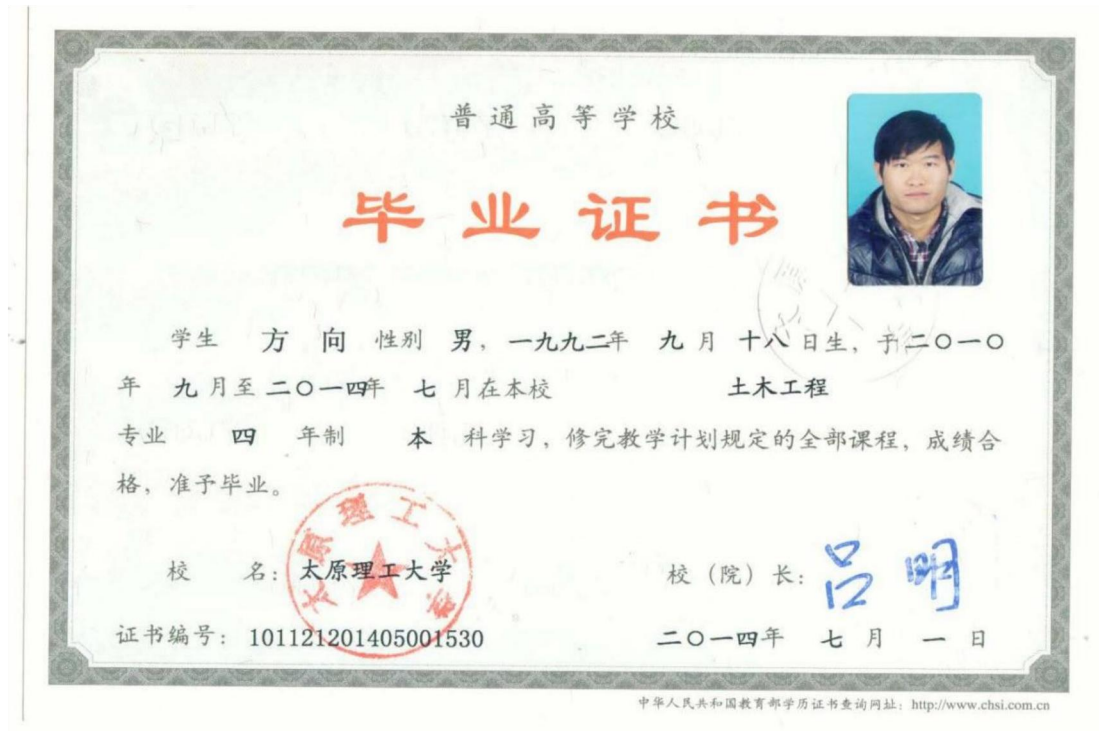 普通高等学校
毕业证书
学生 方向 性别 男，一九九二年 九月 十八日生，于二〇一〇
年 九月至二〇一四年 七月在本校 土木工程
专业 四 年制 本 科学习，修完教学计划规定的全部课程，成绩合
格，准予毕业。
太原理工大学
校 名：太原理工大学
校（院）长：吕明
证书编号：101121201405001530
二〇一四年 七月 一日
中华人民共和国教育部学历证书查询网址：http://www.chsi.com.cn